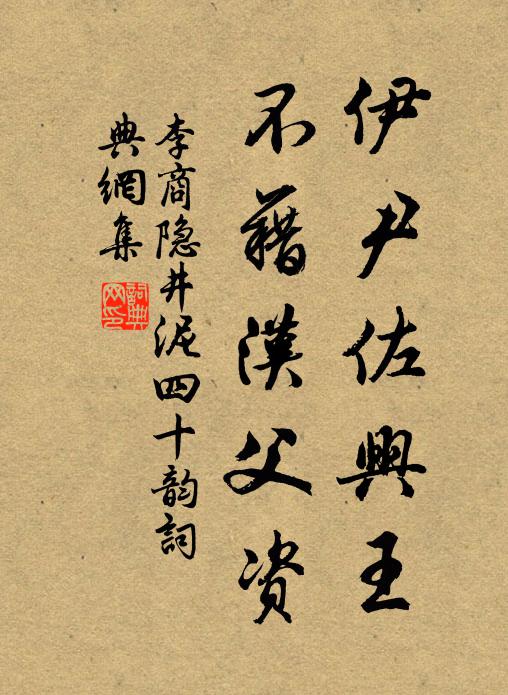 伊尹佐興王
不藉漢父資
李商隐井泥四十韵詞
典網集
詞典
网印